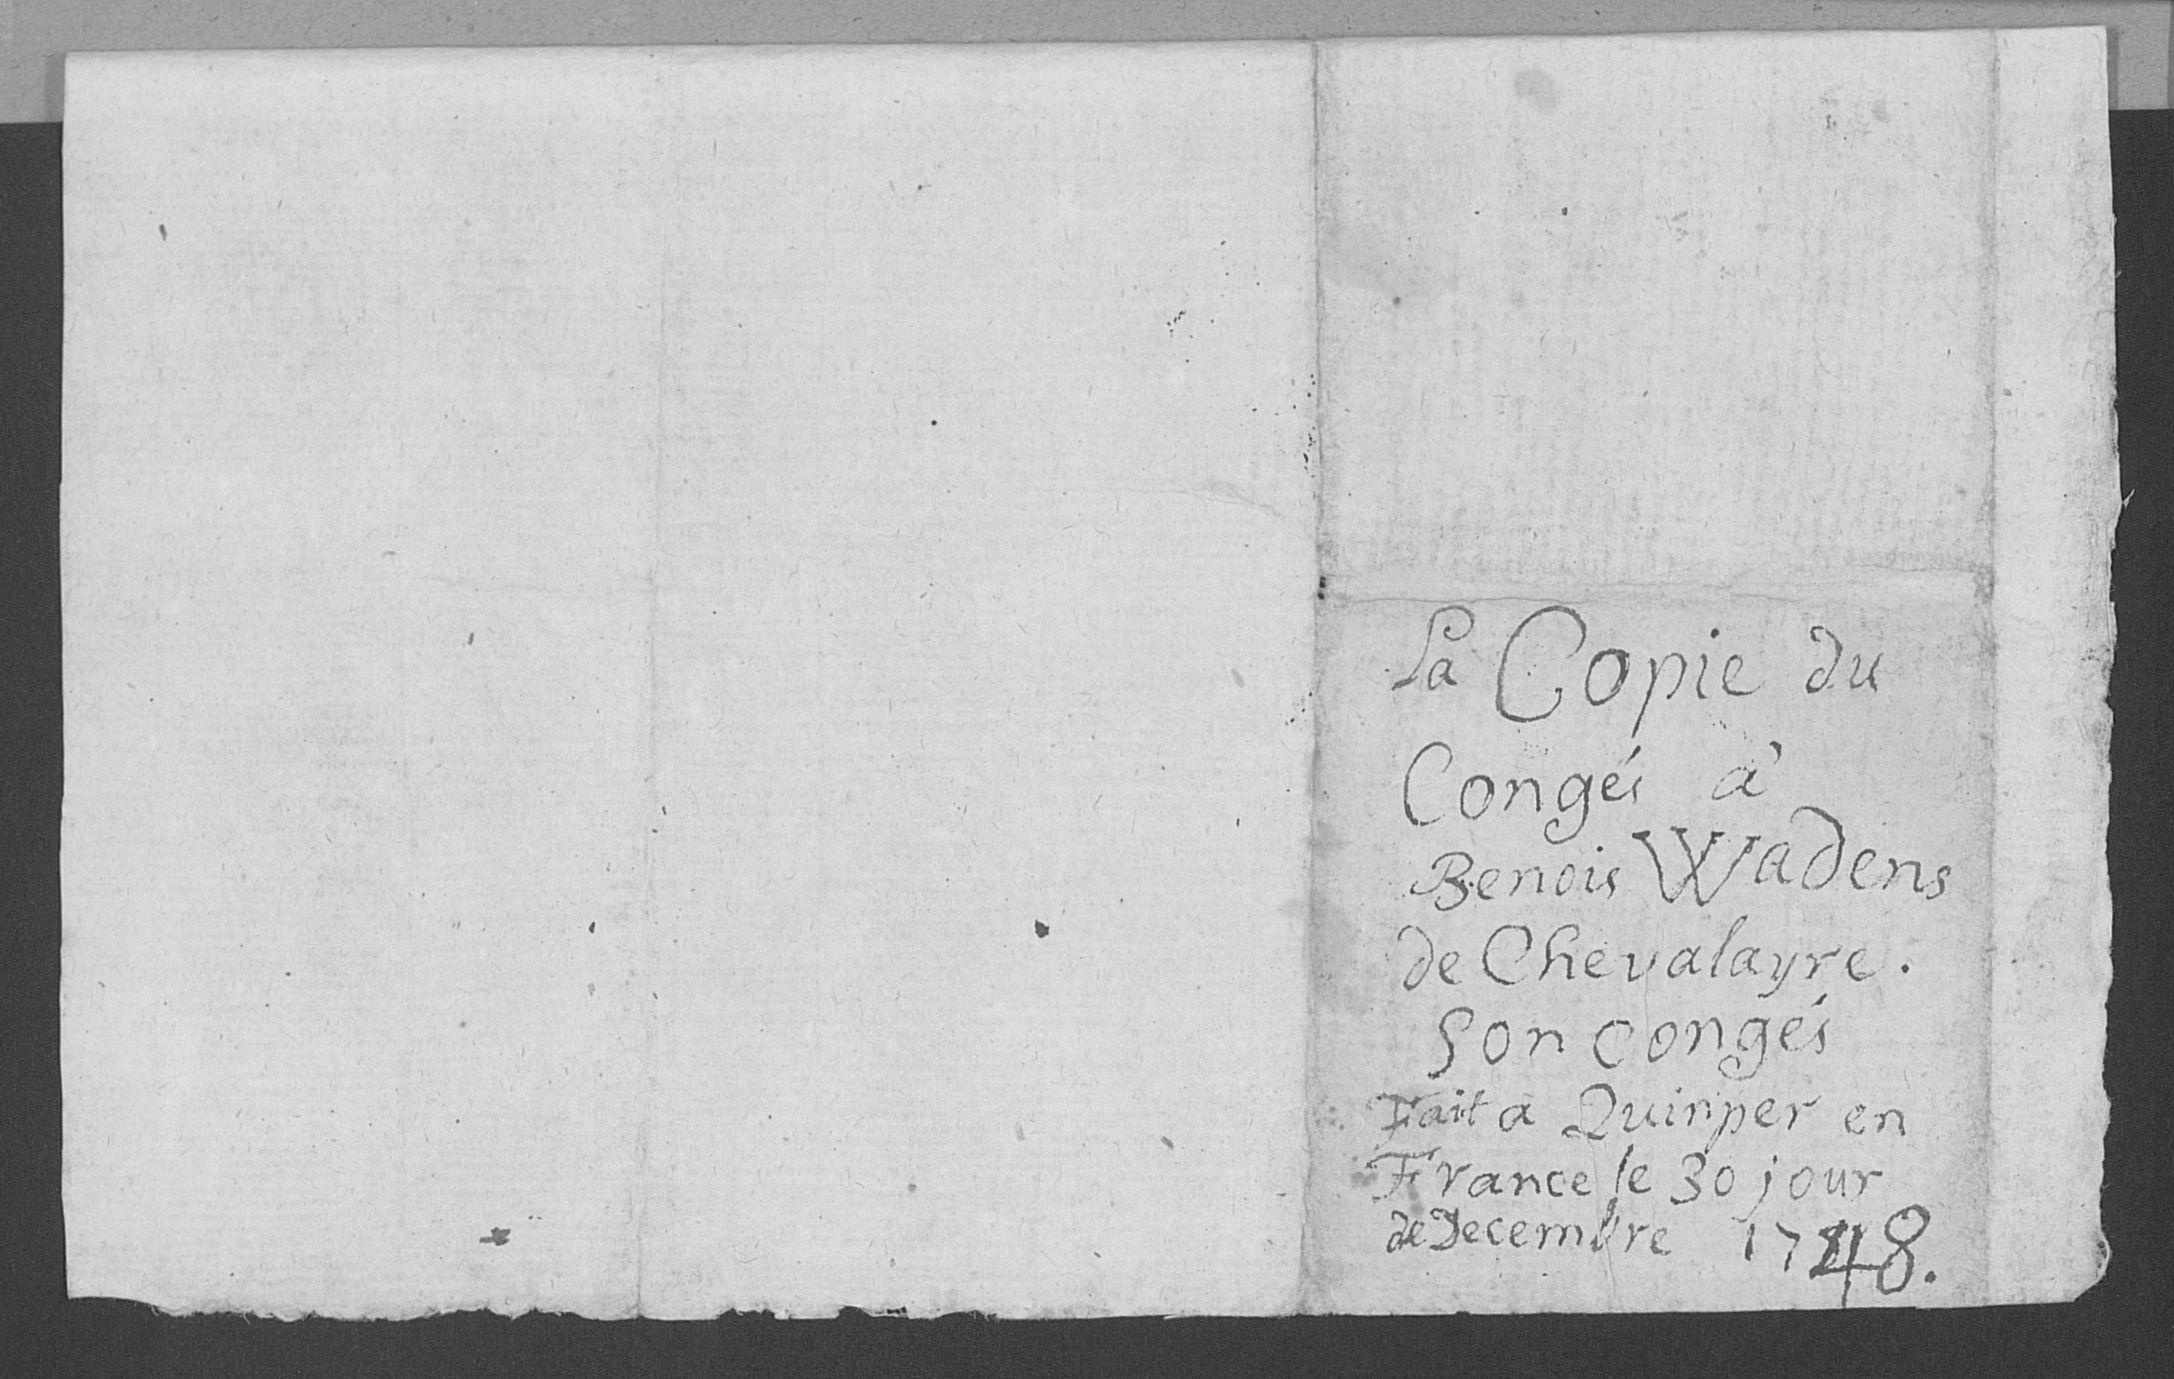 La Copie du
Congés à
Benois Wadens
de Chevalayre.
Son congés
Fait a Quinper en
France le 30 jour
de Decembre 1748.